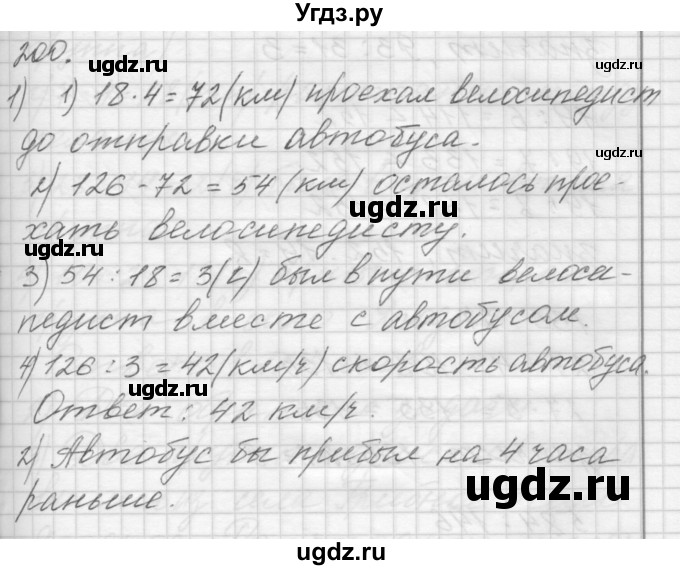 Угдз.ру
200.
1) 1) 18·4=72(км) проехал велосипедист
до отправки автобуса.
2) 126-72=54(км) осталось прое-
хать велосипедисту.
3) 54:18=3(ч) был в пути велоси-
педист вместе с автобусом.
4) 126:3=42(км/ч) скорость автобуса.
Ответ: 42 км/ч.
2) Автобус бы прибыл на 4 часа
раньше.
ugdz.ru
ugdz.ru
ugdz.ru
ugdz.ru
ugdz.ru
ugdz.ru
ugdz.ru
ugdz.ru
ugdz.ru
ugdz.ru